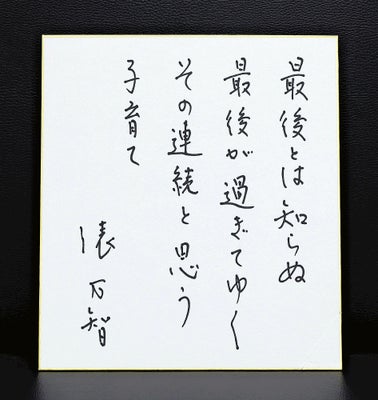 最後とは知らぬ
最後が過ぎてゆく
その連続と思う
子育て
俵万智